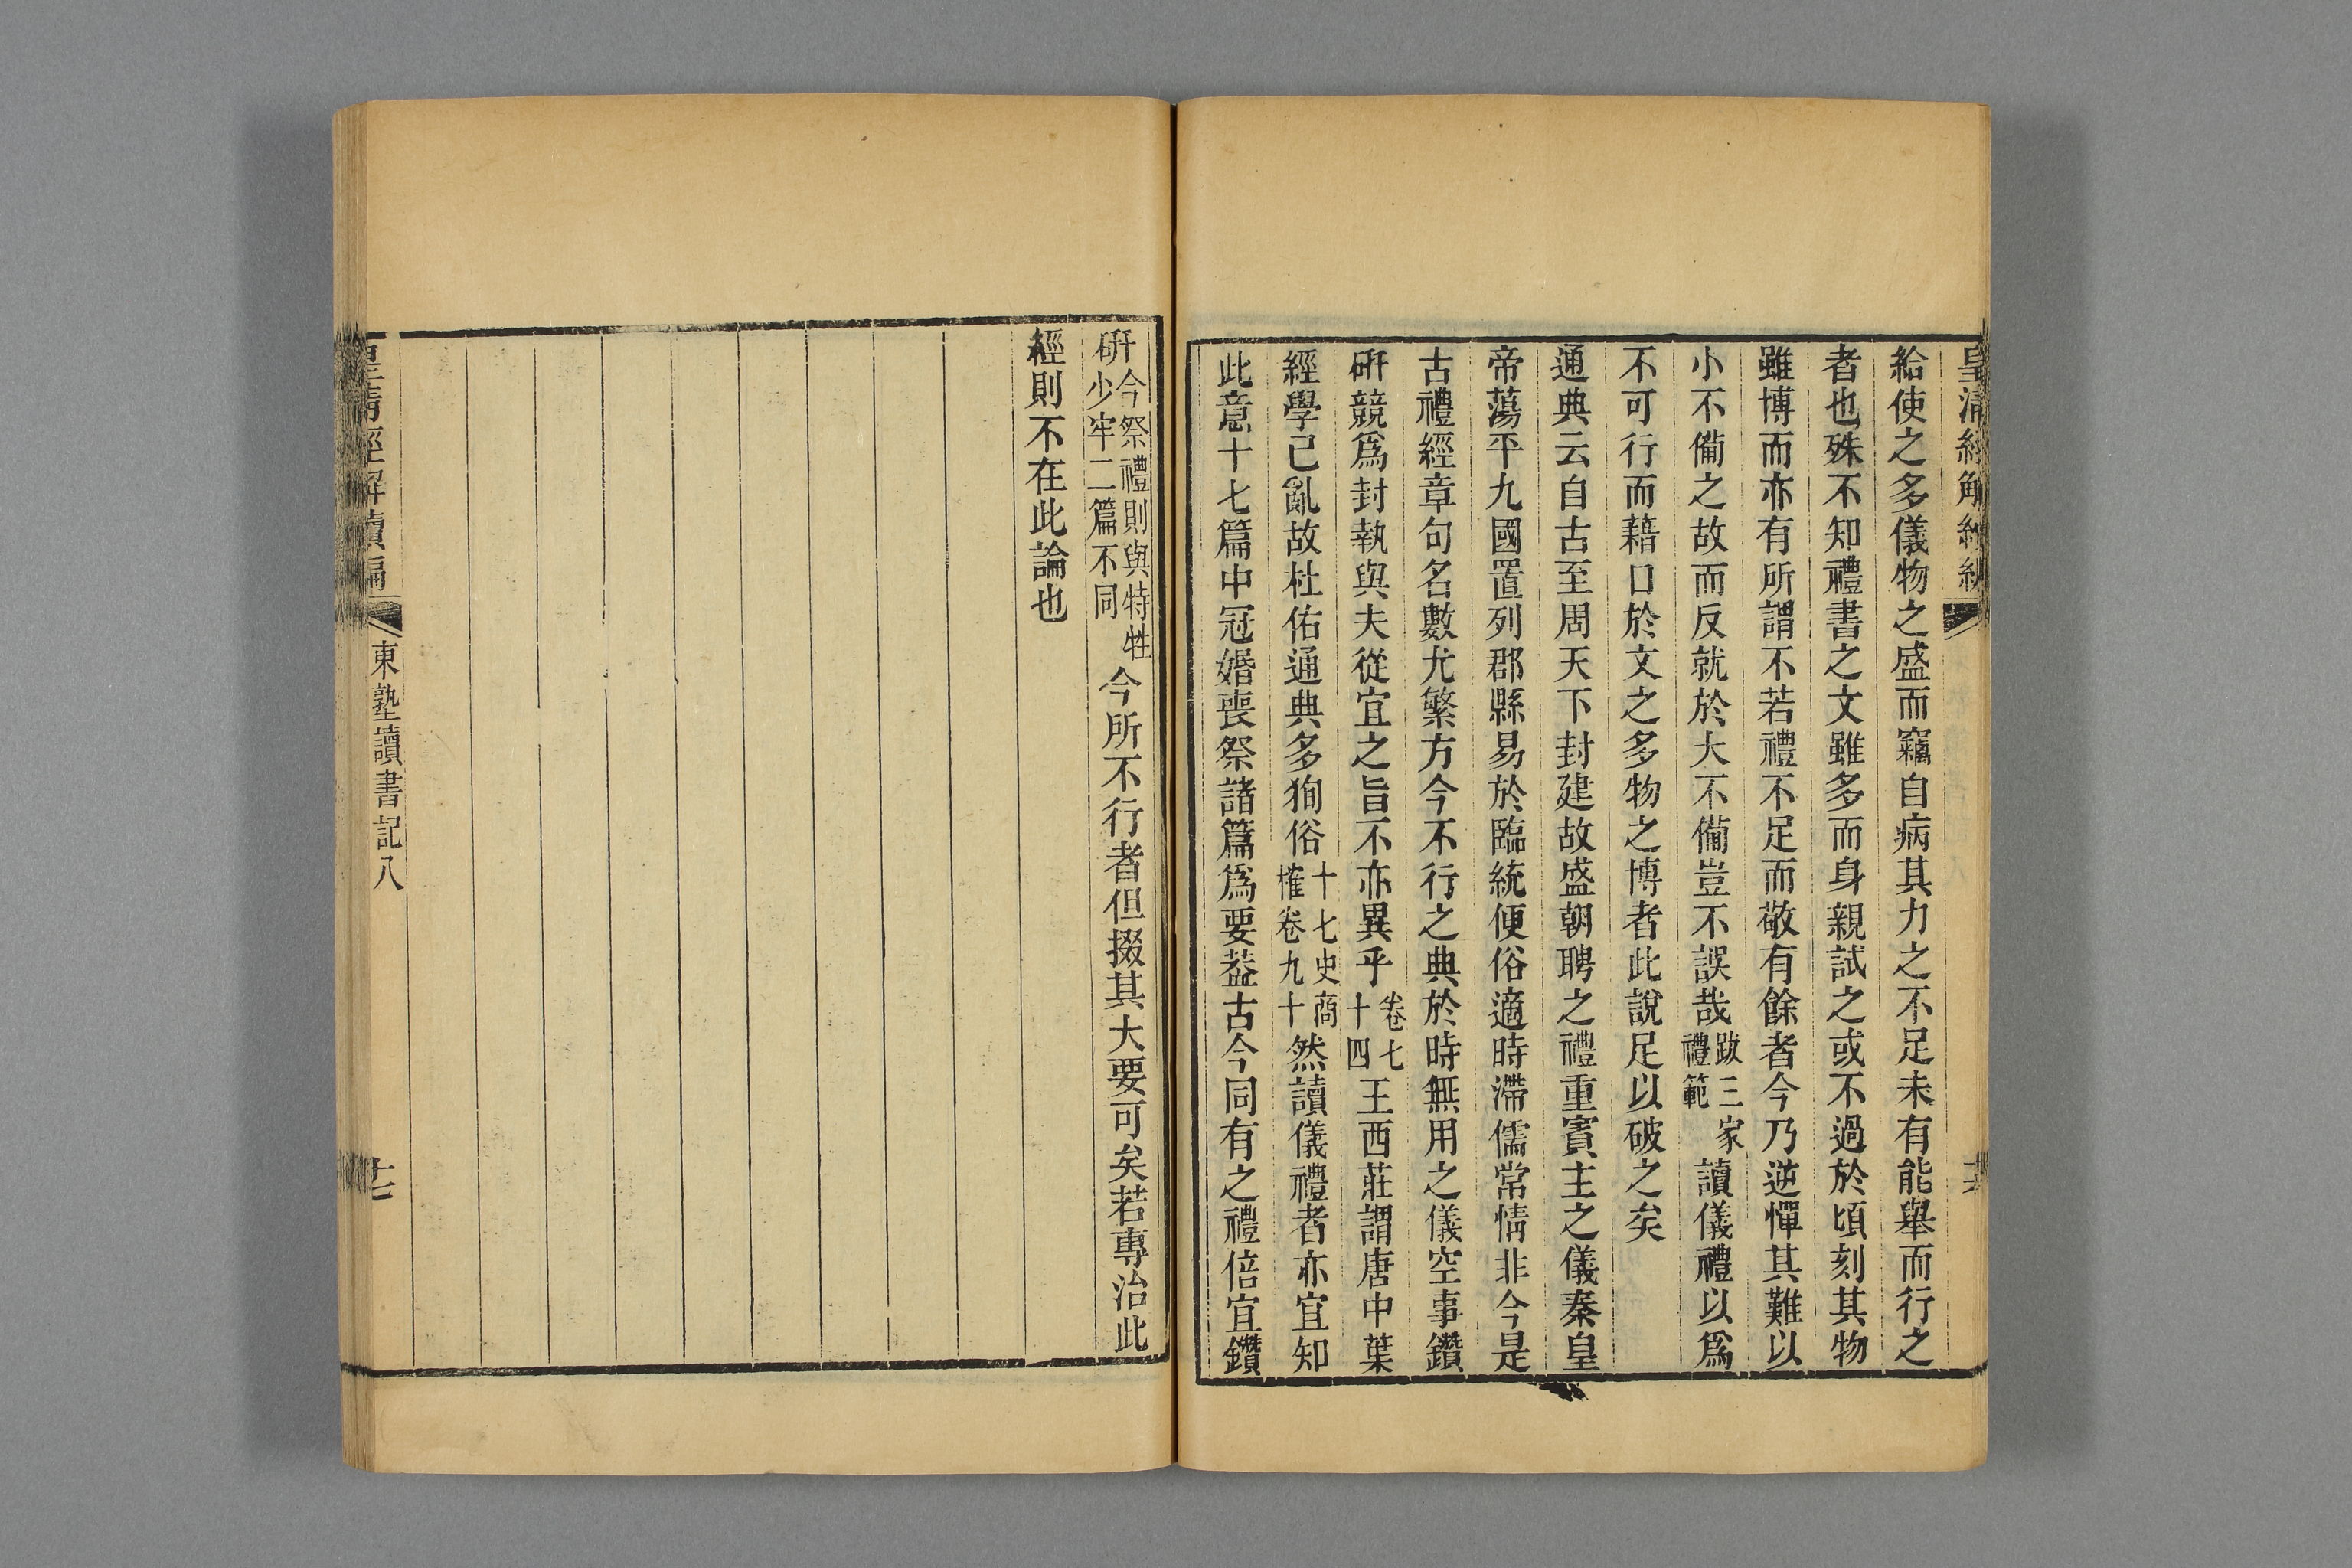 皇清經解續編
給使之多儀物之盛而竊自病其力之不足未有能舉而行之
者也殊不知禮書之文雖多而身親試之或不過於頃刻其物
雖博而亦有所謂不若禮不足而敬有餘者今乃逆憚其難以
小不備之故而反就於大不備豈不誤哉跋三家禮範讀儀禮以爲
不可行而藉口於文之多物之博者此說足以破之矣
通典云自古至周天下封建故盛朝聘之禮重賓主之儀秦皇
帝蕩平九國置列郡縣易於臨統便俗適時滯儒常情非今是
古禮經章句名數尤繁方今不行之典於時無用之儀空事鑽
硏競爲封執與夫從宜之旨不亦異乎卷七十四王西莊謂唐中葉
經學已亂故杜佑通典多狥俗十七史商榷卷九十然讀儀禮者亦宜知
此意十七篇中冠婚喪祭諸篇爲要葢古今同有之禮倍宜鑽
硏今祭禮則與特牲少牢二篇不同今所不行者但掇其大要可矣若專治此
經則不在此論也
皇清經解續編
東塾讀書記八